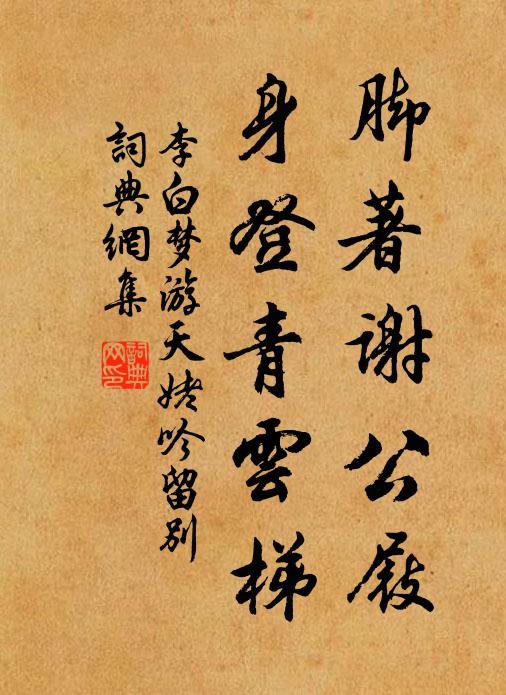 脚著謝公屐
身登青雲梯
李白梦游天姥吟留别
詞典網集
詞典网印